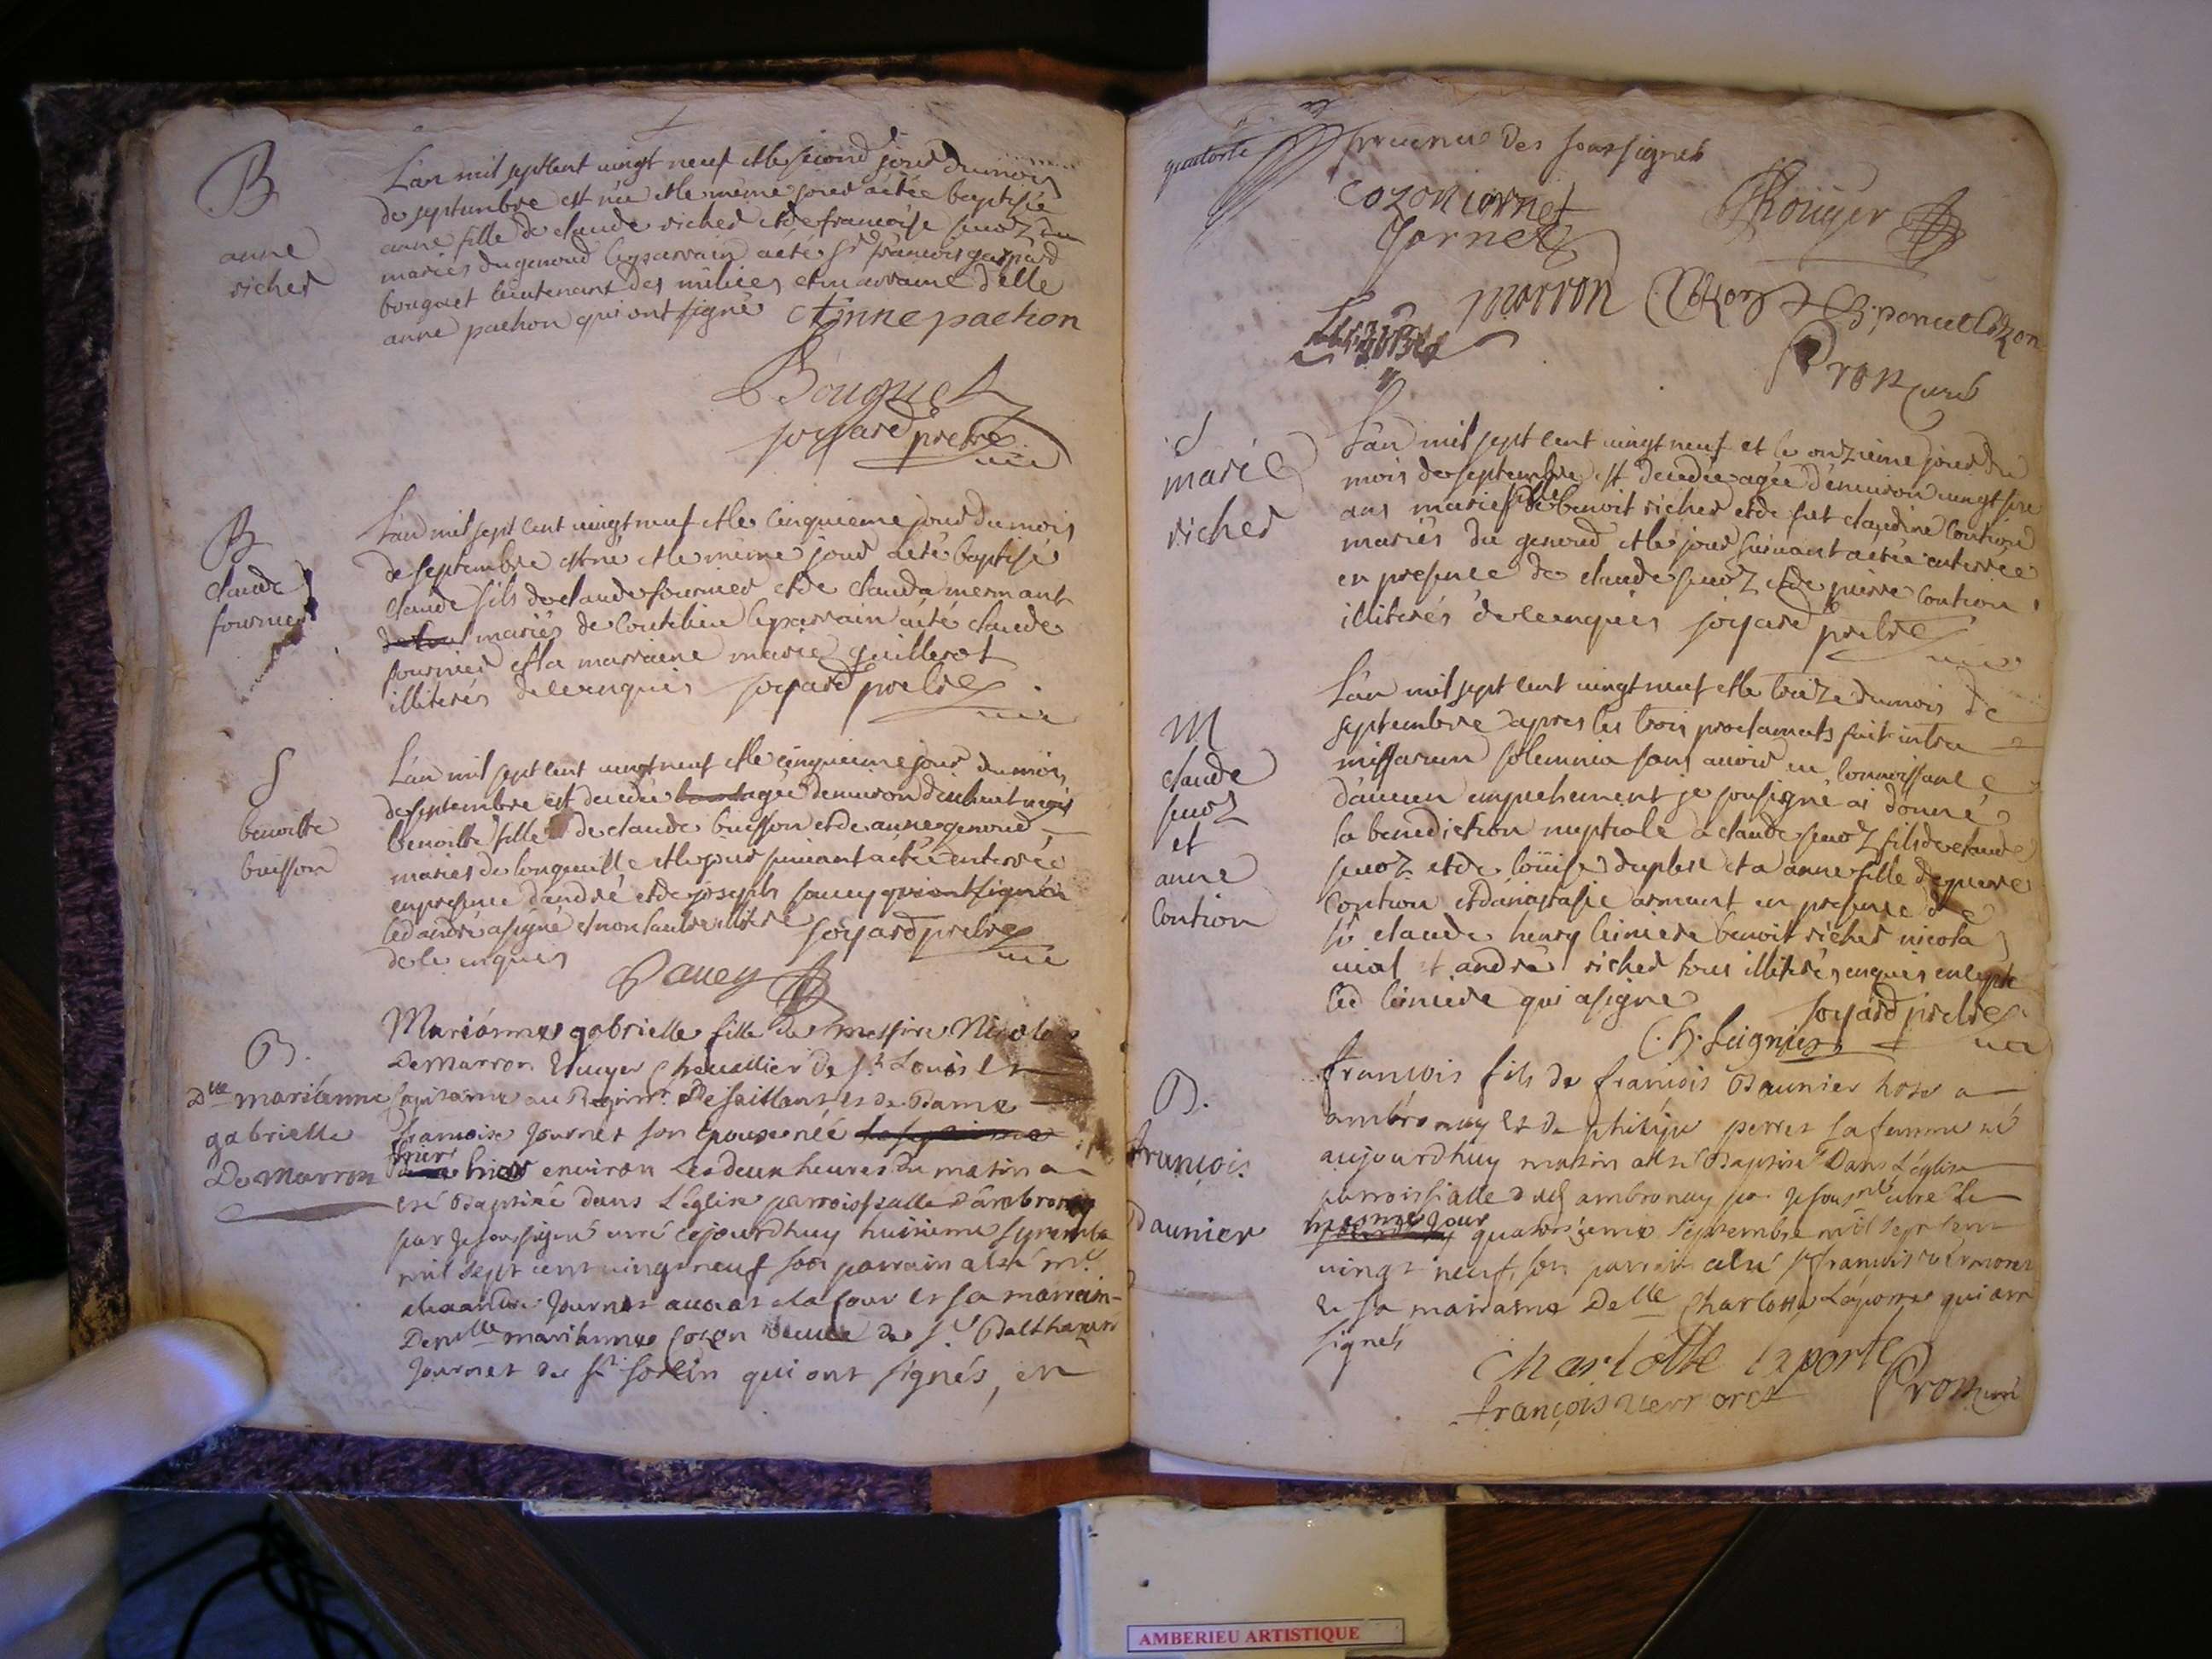 B
anne
richer
L'an mil sept cent vingt neuf et le second jour du mois
de septembre est née et le même jour a étée baptisée
anne fille de claude richer et de francoise
mariés du genoud le parrain a été Sr francois gaspard
bouquet lieutenant des milices et marraine delle
anne pachon qui ont signé Anne pachon
Bouquet
soyard pretre
B
claude
fournier
L'an mil sept cent vingt neuf et le cinquieme jour du mois
de septembre est né et le même jour a été baptisé
claude fils de claude fournier et de clauda mermant
mariés de coutelieu le parrain a été claude
fournier et la marraine marie guillerot
illiterés de ce enquis soyard prebre
S
benoitte
buisson
L'an mil sept cent vingt neuf et le cinquieme jour du mois
de septembre est decedée agée denviron dixhuit mois
benoitte fille de claude buisson et de anne genoud
mariés de longeville et le jour suivant a étée enterrée
en presence d'andré et de joseph savey qui ont signés
led andré a signé et non l'autre illitere soyard prebre
de ce enquis
Savey
B.
Dlle marianne
gabrielle
De Marron
Marianne gabrielle fille de messire Nicolas
De Marron Ecuyer Chevallier de St Louis et
Capitaine au Regimt. De saillant et de Dame
francoise Journet son epouse née
hier environ les deux heures du matin a
eté Baptisé dans L'eglise parroissialle d'ambronay
par je soussigné curé cejourdhuy huitieme septembre
mil sept cent vingt neuf son parrain a esté mr.
alexandre Journet avocat a la cour et sa marraine
Demlle marianne Cozon veuve de Sr. Balthazard
Journet de St Sorlin qui ont signés, en
quatorze
presence des soussignes
cozon iornet
Jornet
Rouyer
marron
B. poncet Cozon
Pron curé
S
marie
richer
L'an mil sept cent vingt neuf et le onzieme jour du
mois de septembre est decedée agée d'environ vingt
ans marie fille de benoit richer et de fut claudine contion
mariés du genoud et le jour suivant a étée enterrée
en presence de claude et de pierre contion
illiterés de ce enquis soyard prebre
M
claude
et
anne
contion
L'an mil sept cent vingt neuf et le treize du mois de
septembre apres les trois proclamats fait intra
missarum solemnia sans avoir eu connoissance
d'aucun empechement je sousigné ai donné
la benediction nuptiale a claude fils de claude
et de louise duplex et a anne fille de pierre
contion et d'anastasie armant en presence de
sr claude henry benoit richer nicola
vial et andré richer tous illiterés enquis excepte
led qui a signe soyard prebre
B.
françois
Baunier
francois fils de francois Baunier hoste a
ambronay et de philippe perret sa femme né
aujourdhuy matin a esté Baptisé Dans L'eglise
parroissialle dud ambronay par je sousné curé le
mesme jour quatorzieme septembre mil sept cent
vingt neuf, son parrain a esté sr francois vermoret
et sa marraine Delle Charlotte Laporte qui ont
signés
Charlotte laporte
françois vermoret
Pron curé
AMBERIEU ARTISTIQUE